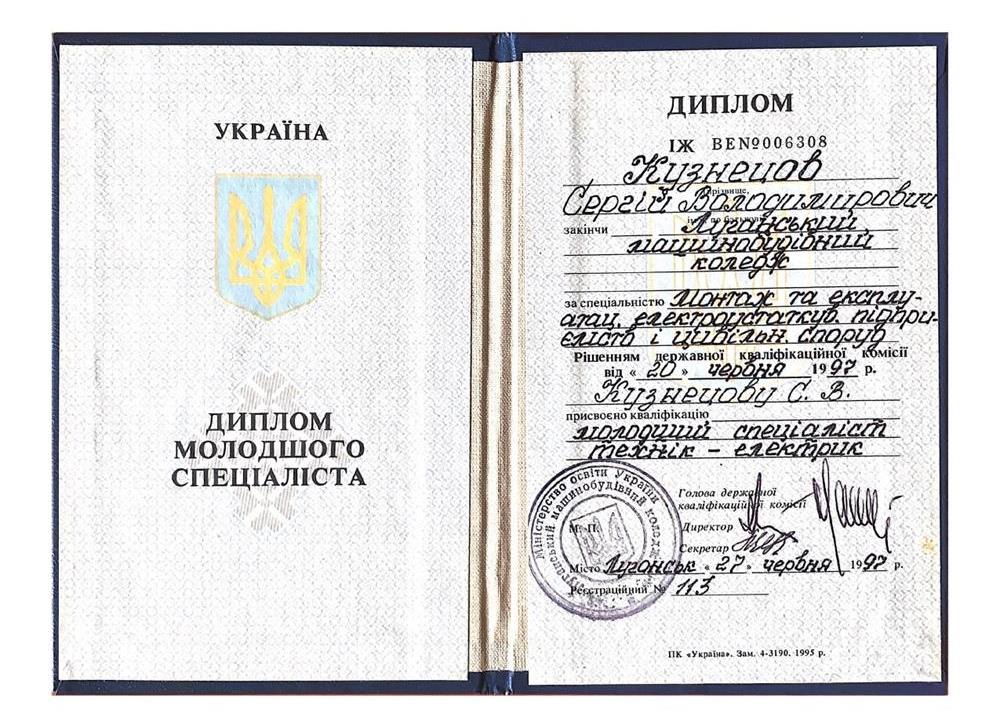 УКРАЇНА
ДИПЛОМ
МОЛОДШОГО
СПЕЦІАЛІСТА
ДИПЛОМ
ІЖ ВЕ№006308
Кузнецов
прізвище,
Сергій Володимирович
закінчи Луганський
машинобудівний
коледж
за спеціальністю Монтаж та експлу-
атац. електроустаткув. підпри-
ємств і цивільн. споруд
Рішенням державної кваліфікаційної комісії
від « 20 » червня 1997 р.
Кузнецову С. В.
присвоєно кваліфікацію
молодший спеціаліст
технік – електрик
Голова державної
кваліфікаційної комісії
Директор
М. П.
Секретар
Місто Луганськ « 27 » червня 1997 р.
Реєстраційний № 113
Міністерство освіти України
Луганський машинобудівний коледж
ПК «Україна». Зам. 4-3190. 1995 р.